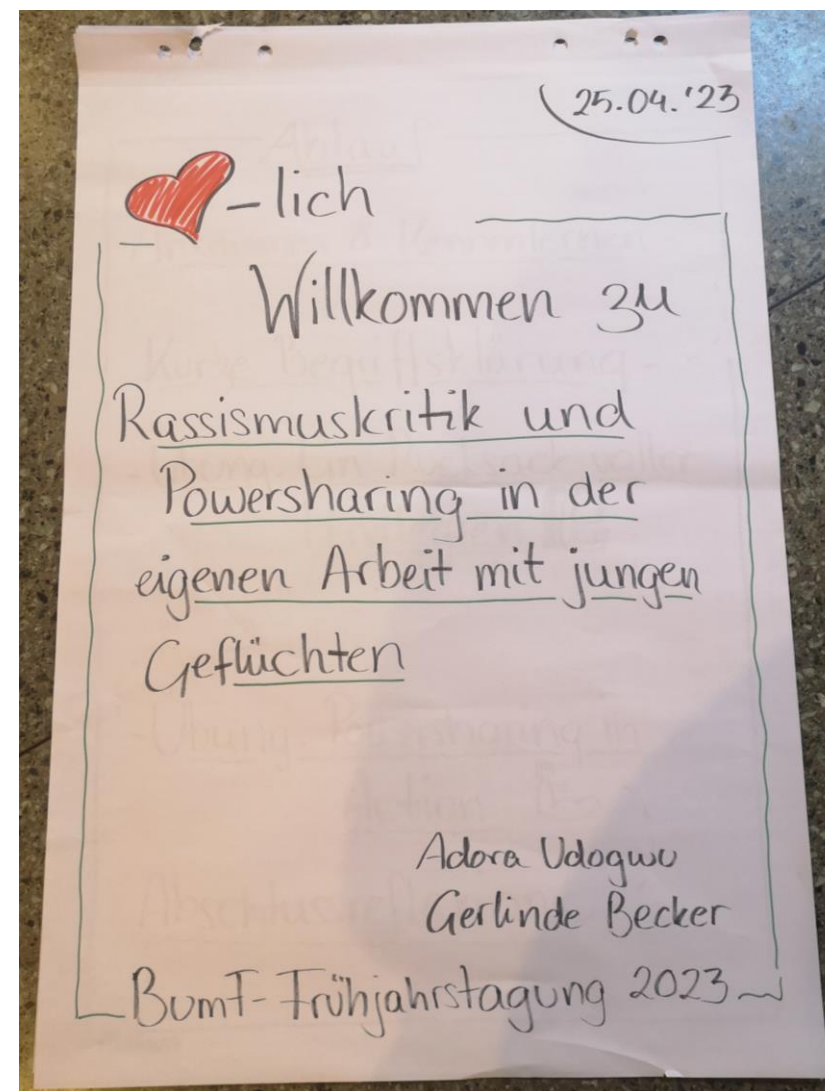 25.04.'23
-lich
Willkommen zu
Rassismuskritik und
Powersharing in der
eigenen Arbeit mit jungen
Geflüchten
Adora Udogwu
Gerlinde Becker
BumF-Frühjahrstagung 2023